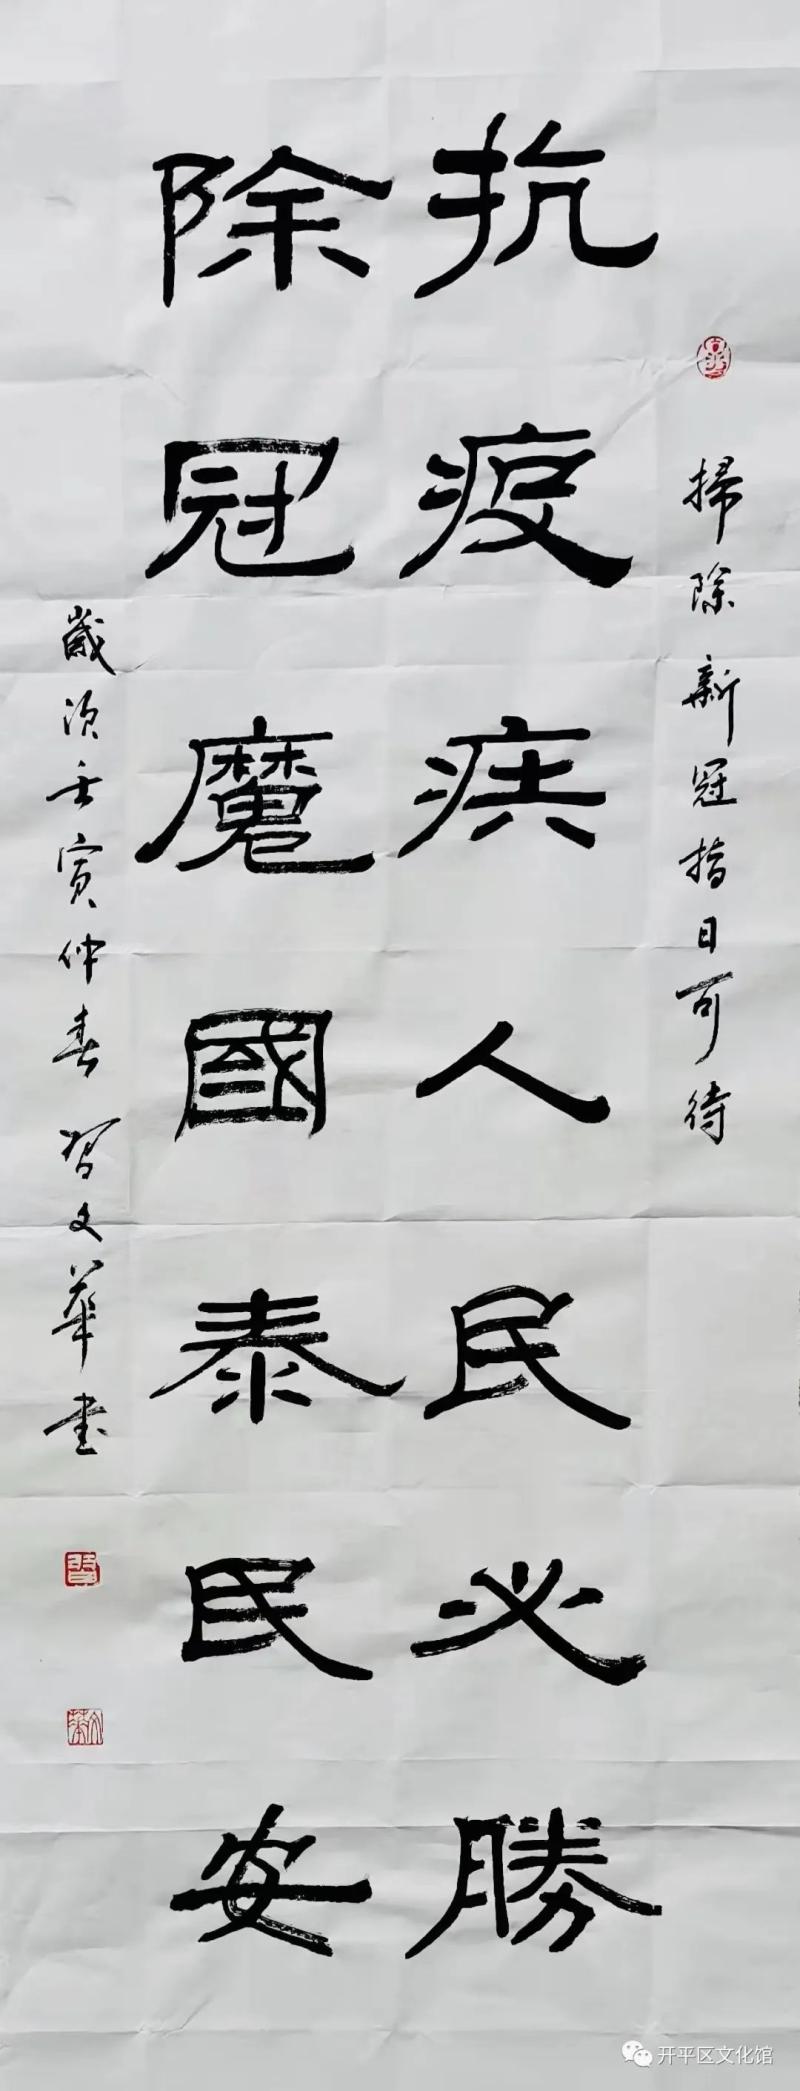 掃除新冠指日可待
抗疫疾人民必勝
除冠魔國泰民安
歲次壬寅仲春習文華書
開平区文化馆